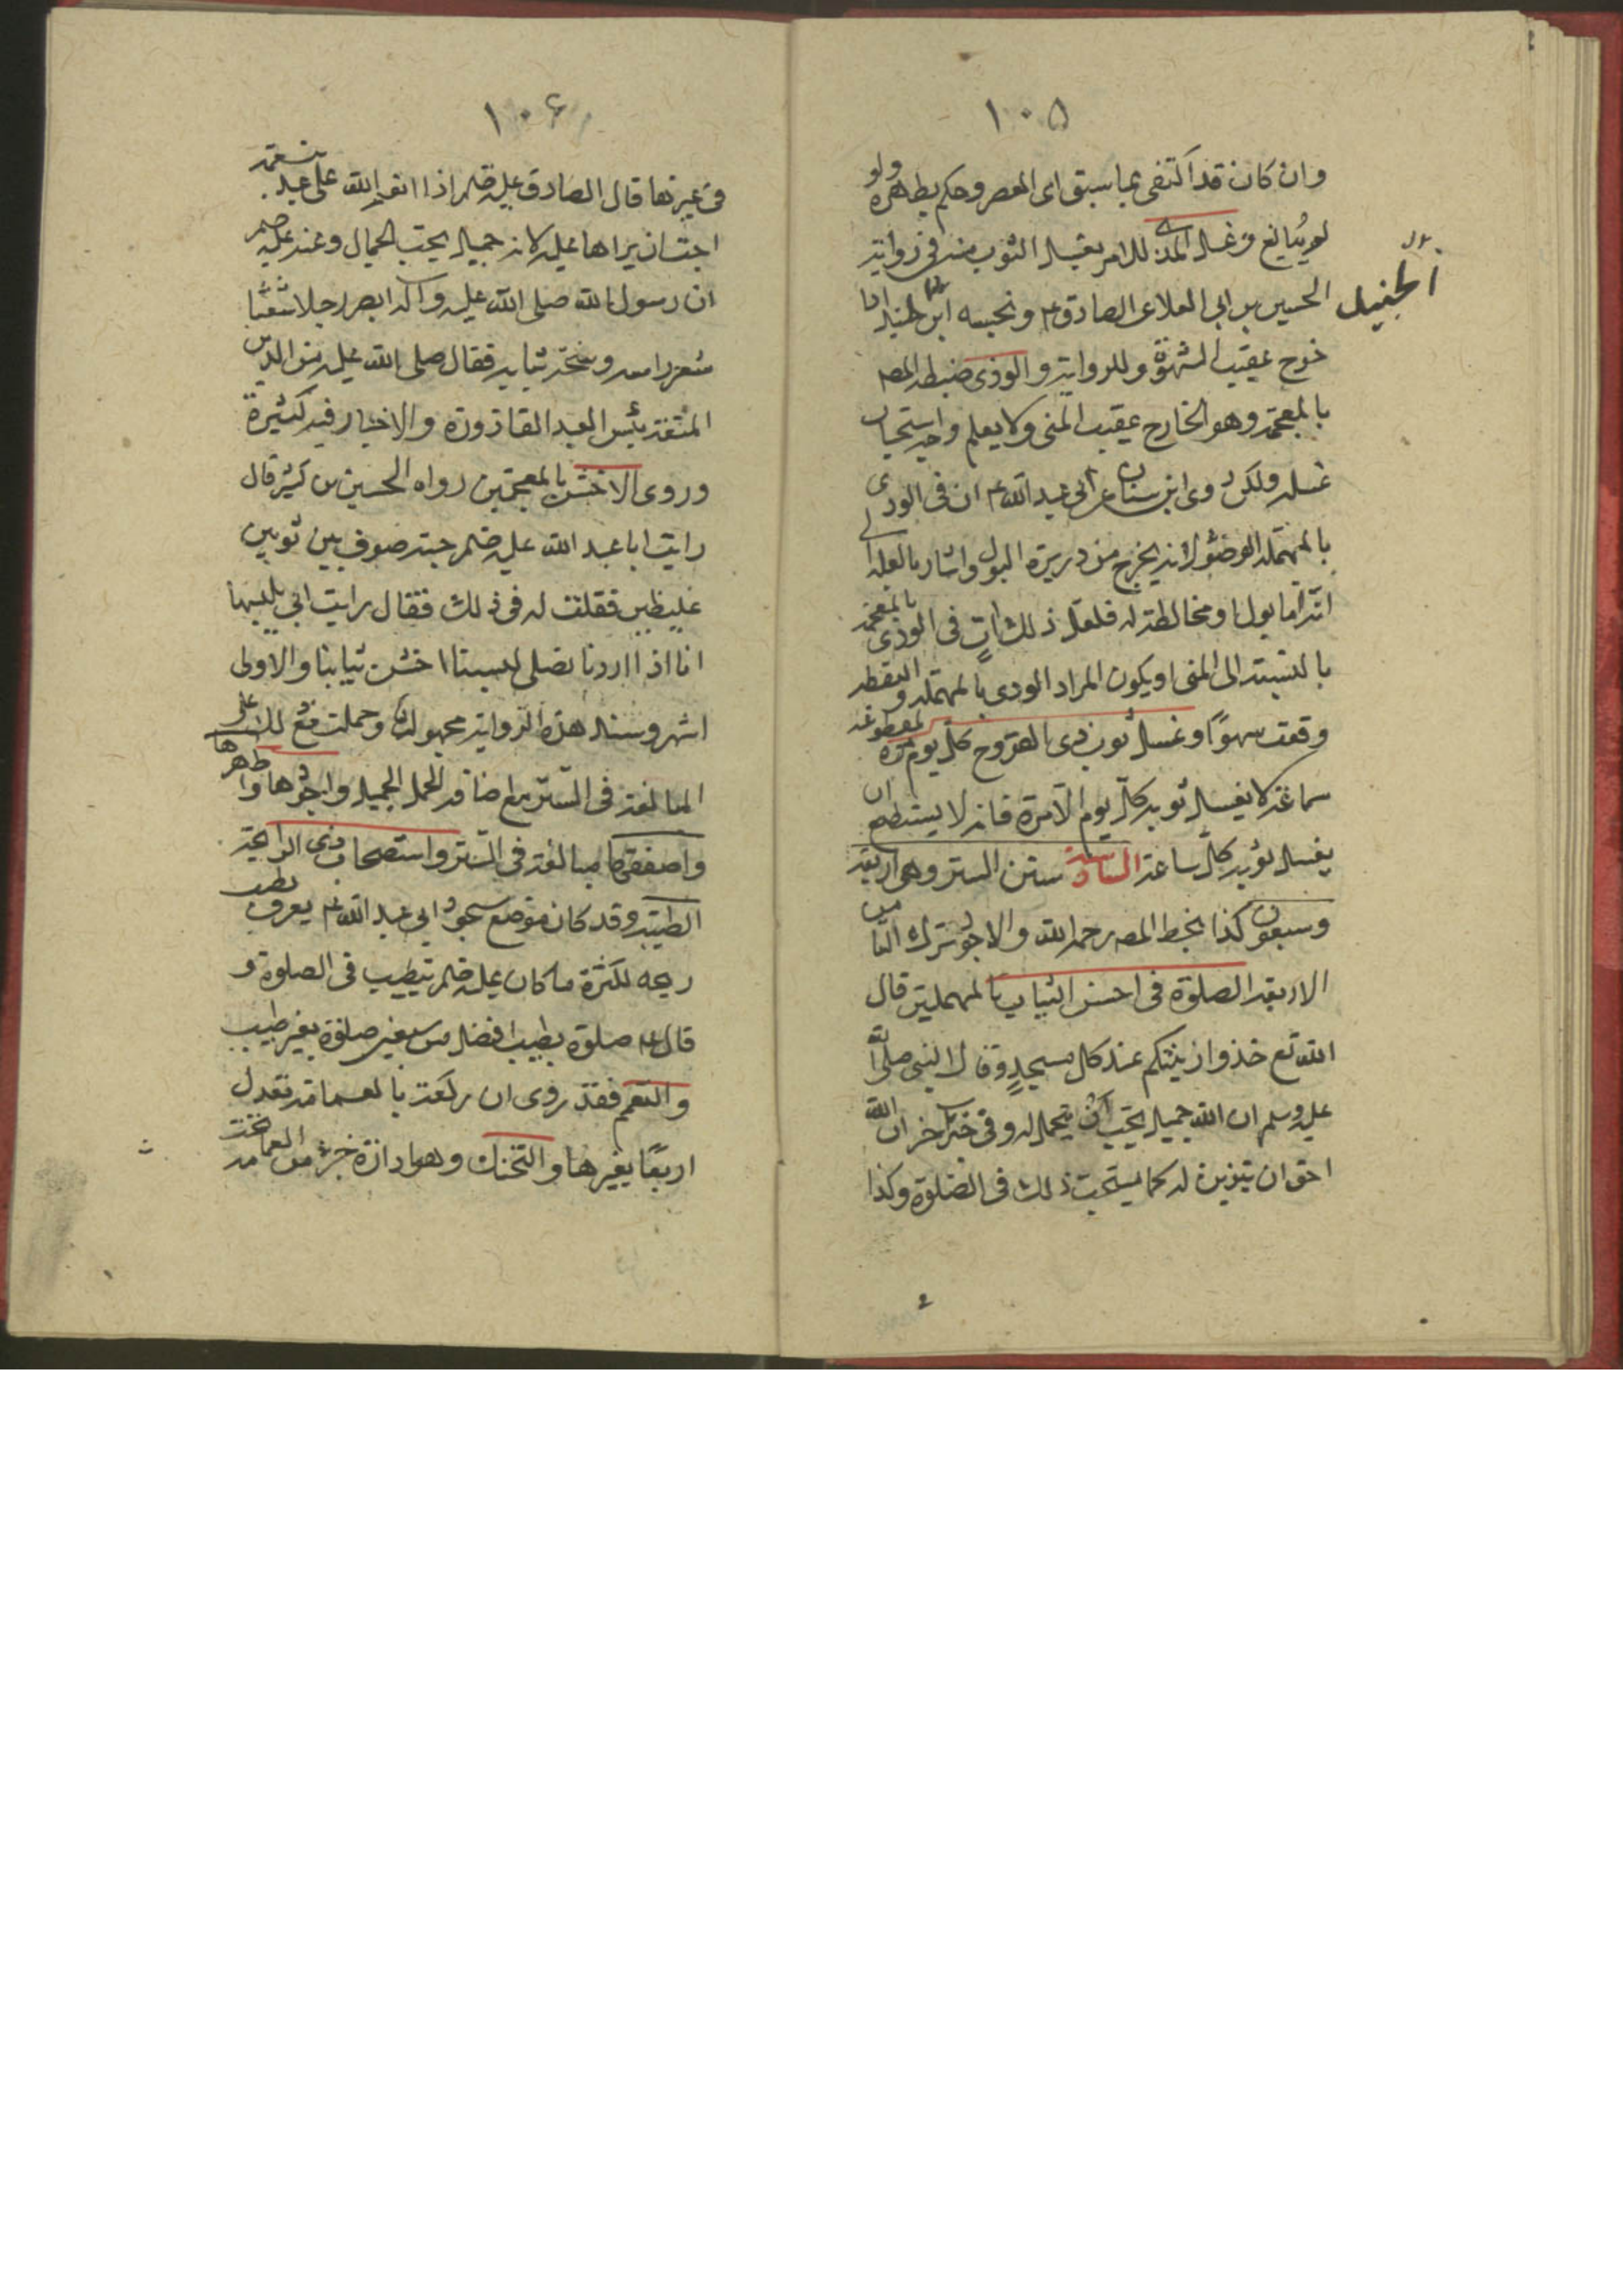 ١٠٥
وان كان قد اكتفى بما سبق اى العصر وحكم بطهره ولو
لم يبالغ وغسل المذى للامر بغسل الثوب منه فى رواية
الحسين بن ابى العلا عن الصادق ع ونجسه ابن الجنيد اذا
الجنيد
خرج عقيب الشهوة وللرواية والوذى ضبطه المصـ
بالمعجمة وهو الخارج عقيب المنى ولا يعلم وجه استحباب
غسله ولكن روى ابن سنان عن ابى عبد الله ع ان فى الودى
بالمهملة الوضوء لانه يخرج من دريرة البول واشار بالعلة الى
انه اما بول او مخالطة له فلعل ذلك آت فى الوذى بالمعجمة
بالنسبة الى المنى او يكون المراد الودى بالمهملة والنقطة
وقعت سهوًا وغسل ثوب ذى القروح كل يوم مرة لمقطوعة
سماعة لا يغسل ثوبه كل يوم الا مرة فانه لا يستطيع ان
يغسل ثوبه كل ساعة السادسة سنن الستر وهى اربعة
وسبعون كذا بخط المصـ رحمه الله والاجود ترك التاء من
الاربعة الصلوة فى احسن الثياب بالمهملتين قال
الله تع خذوا زينتكم عند كل مسجدٍ وقال النبى صلى الله
عليه وسلم ان الله جميل يحب ان يتجمل له وفى خبر آخر ان الله
احق ان يتزين له كما يستحب ذلك فى الصلوة وكذا
١٠۶
فى غيرها قال الصادق عليه السلم اذا انعم الله على عبد بنعمة
احب ان يراها عليه لانه جميل يحب الجمال وعنه عليه السلم
ان رسول الله صلى الله عليه وآله ابصر رجلا شعثًا
شعر راسه وسخة ثيابه فقال صلى الله عليه من الدين
المتعة بئس العبد القاذورة والاخبار فيه كثيرة
وروى الاخشن بالمعجمتين رواه الحسين بن كثير قال
رايت ابا عبد الله عليه السلم جبة صوف بين ثوبين
غليظين فقلت له فى ذلك فقال رايت ابى يلبسها
انا اذا اردنا نصلى لبسنا اخشن ثيابنا والاولى
اشهر وسند هذه الرواية مجهول وحملت مع ذلك على
المبالغة فى الستر مع اضافة المحمل الجميل واجودها واطهرها
واصفقها مبالغة فى الستر واستصحاب ذى الرايحة
الطيبة وقد كان موضع سجود ابى عبد الله ع يعرف بطيب
ريحه لكثرة ما كان عليه السلم يتطيب فى الصلوة و
قال ع صلوة بطيب افضل من سبعين صلوة بغير طيب
والتعمم فقد روى ان ركعة بالعمامة تعدل
اربعًا بغيرها والتحنك وهو ادارة جزء من العمامة تحت